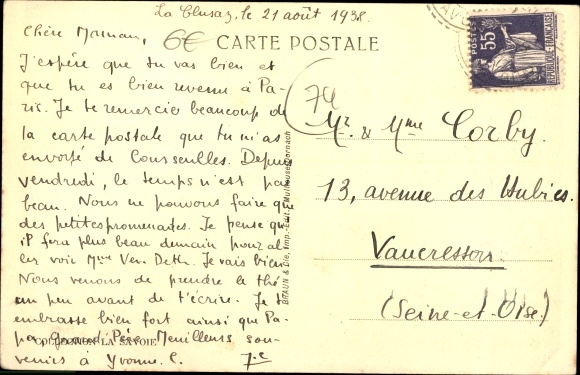 La Clusaz, le 21 août 1938.
Chère Maman,
6€
CARTE POSTALE
J'espère que tu vas bien et
que tu es bien revenue à Pa-
ris. Je te remercie beaucoup de
la carte postale que tu m'as
envoyée de Courseulles. Depuis
vendredi, le temps n'est pas
beau. Nous ne pouvons faire que
des petites promenades. Je pense qu'
il fera plus beau demain pour al-
ler voir Mme Van Deth. Je vais bien.
Nous venons de prendre le thé
un peu avant de t'écrire. Je t'
embrasse bien fort ainsi que Pa-
pa, grand'Père. Meilleurs sou-
venirs à Yvonne. C.
7.C
COLLECTION LA SAVOIE
BRAUN & Cie, Imp.-Edit., Mulhouse-Dornach
74
POSTES
55
REPUBLIQUE FRANÇAISE
Mr. & Mme Corby.
13, avenue des Hubies.
Vaucresson.
(Seine-et-Oise)